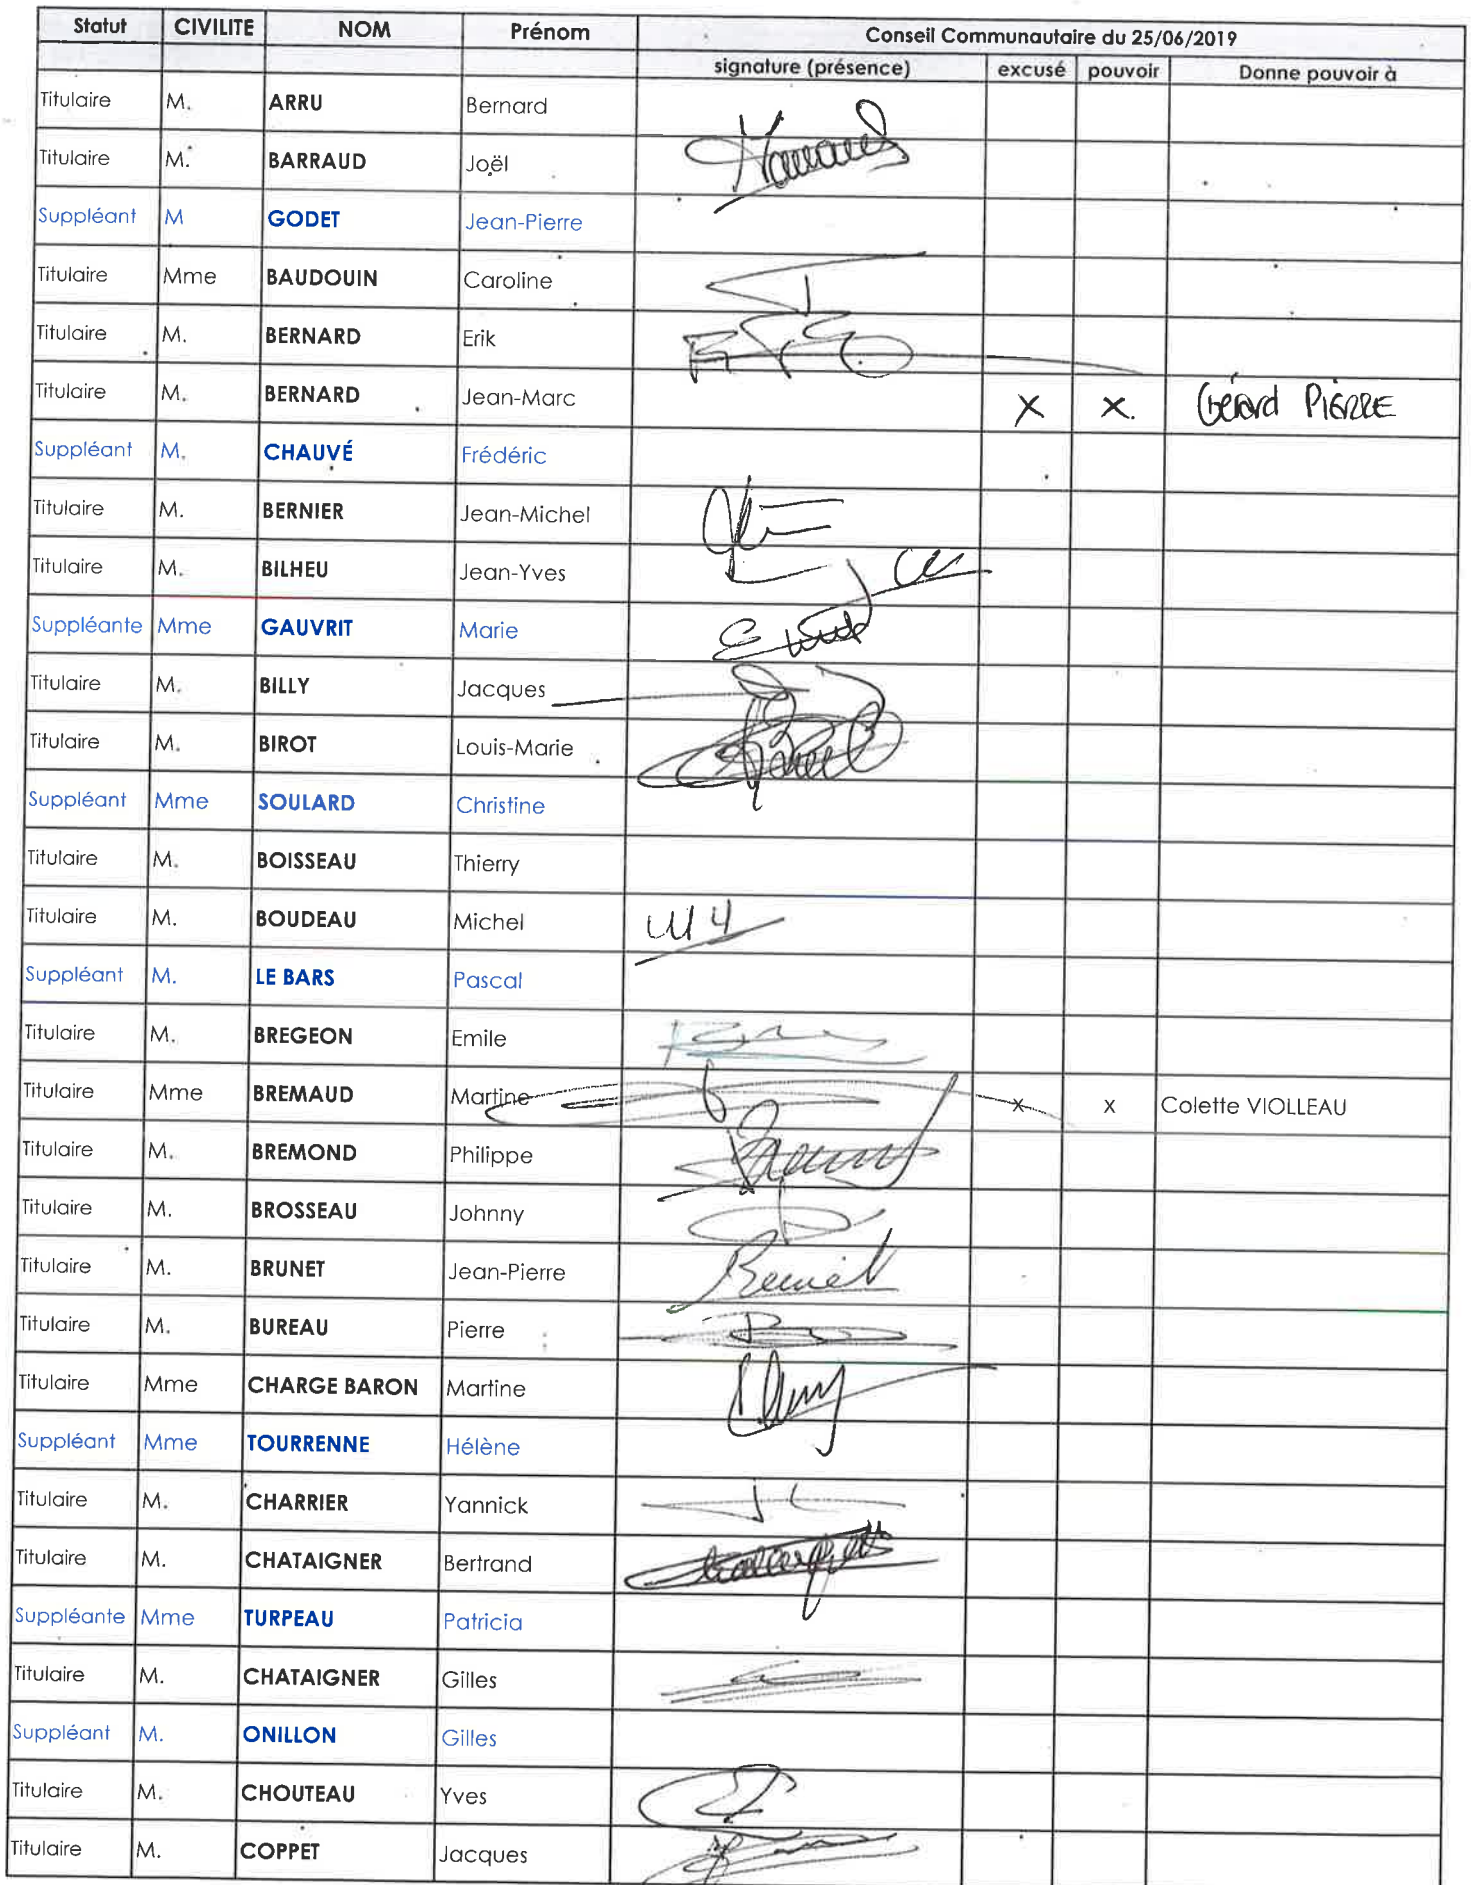 Statut CIVILITE NOM Prénom Conseil Communautaire du 25/06/2019
signature (présence) excusé pouvoir Donne pouvoir à
Titulaire M. ARRU Bernard
Titulaire M. BARRAUD Joël
Suppléant M GODET Jean-Pierre
Titulaire Mme BAUDOUIN Caroline
Titulaire M. BERNARD Erik
Titulaire M. BERNARD Jean-Marc X X. Gérard PIERRE
Suppléant M. CHAUVÉ Frédéric
Titulaire M. BERNIER Jean-Michel
Titulaire M. BILHEU Jean-Yves
Suppléante Mme GAUVRIT Marie
Titulaire M. BILLY Jacques
Titulaire M. BIROT Louis-Marie
Suppléant Mme SOULARD Christine
Titulaire M. BOISSEAU Thierry
Titulaire M. BOUDEAU Michel
Suppléant M. LE BARS Pascal
Titulaire M. BREGEON Emile
Titulaire Mme BREMAUD Martine x x Colette VIOLLEAU
Titulaire M. BREMOND Philippe
Titulaire M. BROSSEAU Johnny
Titulaire M. BRUNET Jean-Pierre
Titulaire M. BUREAU Pierre
Titulaire Mme CHARGE BARON Martine
Suppléant Mme TOURRENNE Hélène
Titulaire M. CHARRIER Yannick
Titulaire M. CHATAIGNER Bertrand
Suppléante Mme TURPEAU Patricia
Titulaire M. CHATAIGNER Gilles
Suppléant M. ONILLON Gilles
Titulaire M. CHOUTEAU Yves
Titulaire M. COPPET Jacques